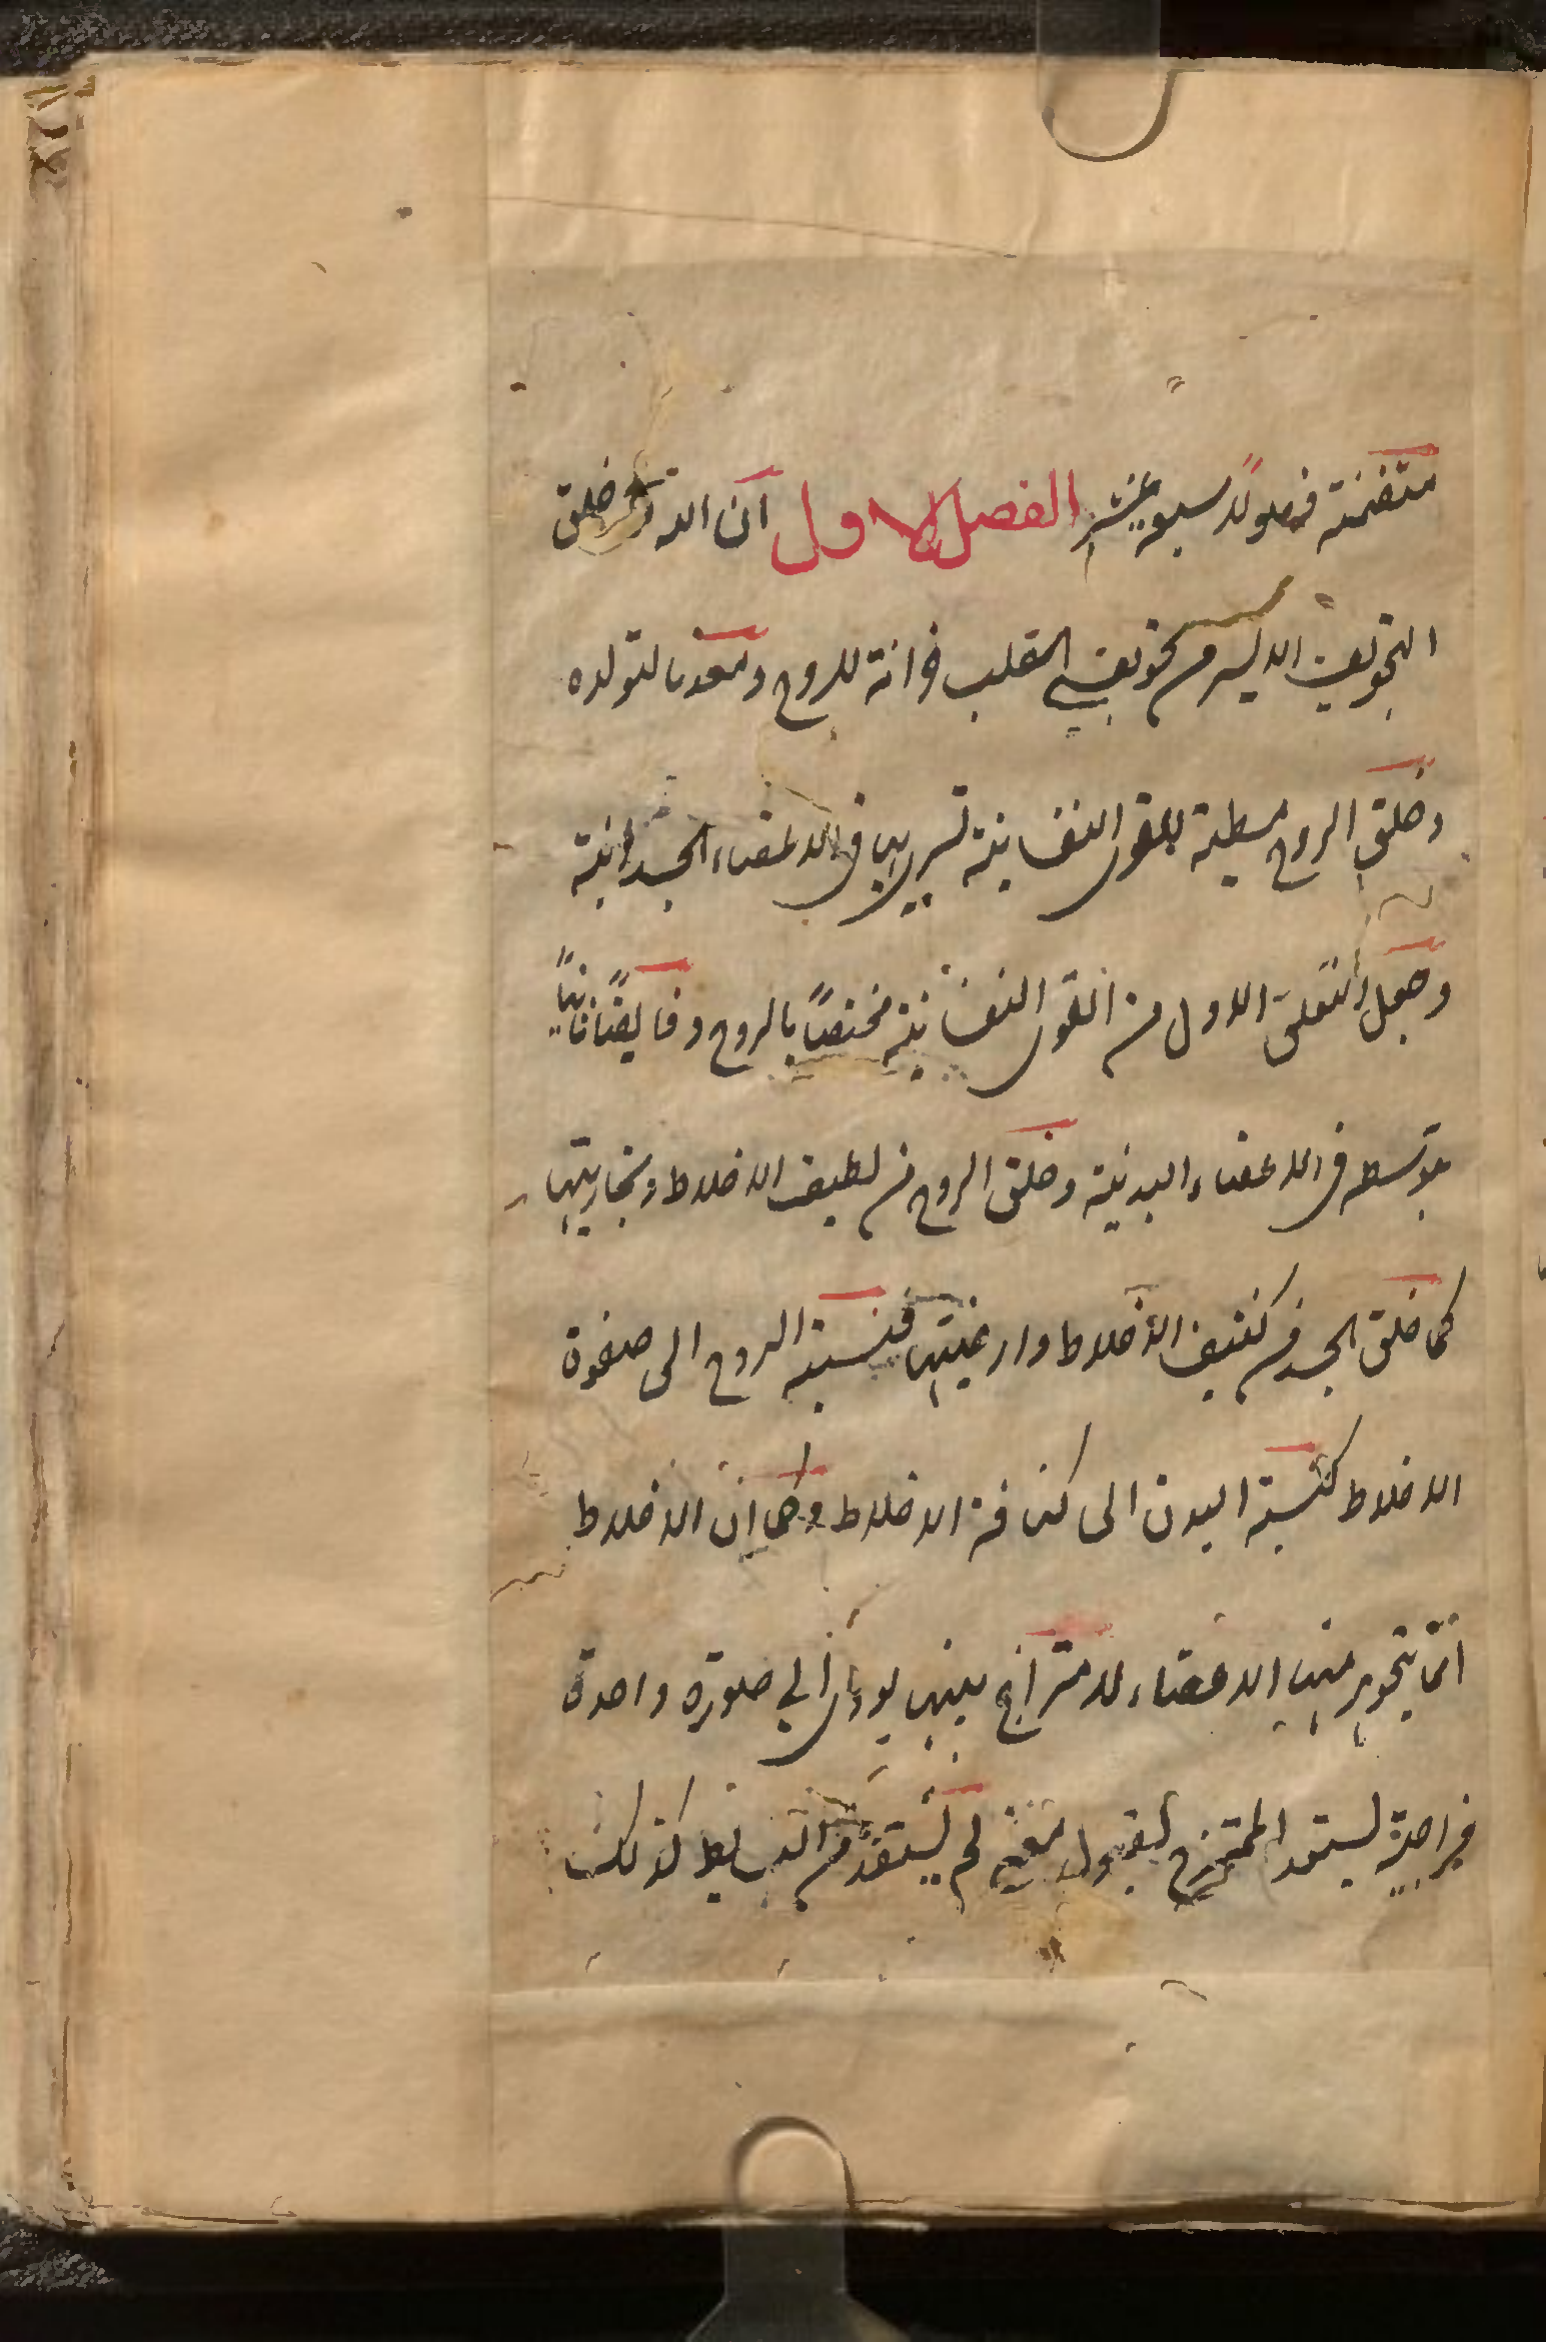 متضمنة فصولا سبعة عشر الفصل الاول ان الله تع خلق
التجويف الايسر من تجويفي القلب خزانة للروح ومعدنا لتولده
وخلق الروح مطية للقوى النفسانية تسري بها في الاعضاء الجسدانية
وجعل التعلق الاول من القوى النفسانية مختصاً بالروح وفايضاً ثانياً
بتوسطه في الاعضاء البدنية وخلق الروح من لطيف الاخلاط وبخاريتها
كما خلق الجسد من كثيف الاخلاط وارضيتها فنسبة الروح الى صفوة
الاخلاط كنسبة البدن الى كثافة الاخلاط وكما ان الاخلاط
انما يتجوهر منها الاعضاء لامتزاج بينها يودى الى صورة واحدة
مزاجية يستعد الممتزج لقبول لم يستفد من البسايط كذلك